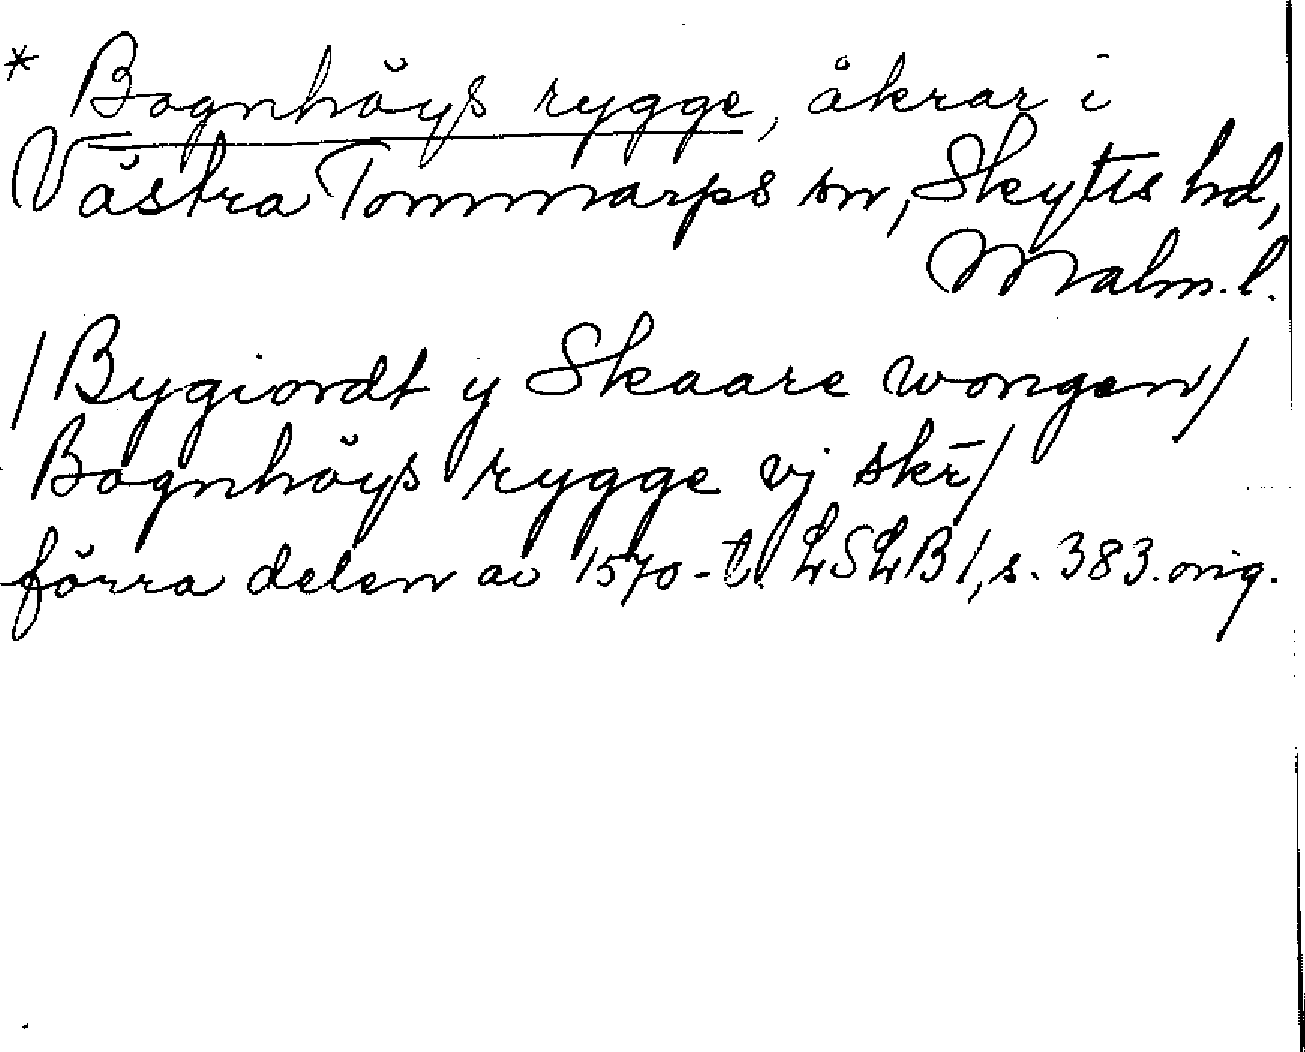 * Bognhöys rygge, åkrar i
Västra Tommarps sn, Skytts hd,
Malm. l.
/Bygiordt y Skaare wongen/
Bognhöys rygge vj skr̄/
förra delen av 1570-t. LSLB 1, s. 383. orig.